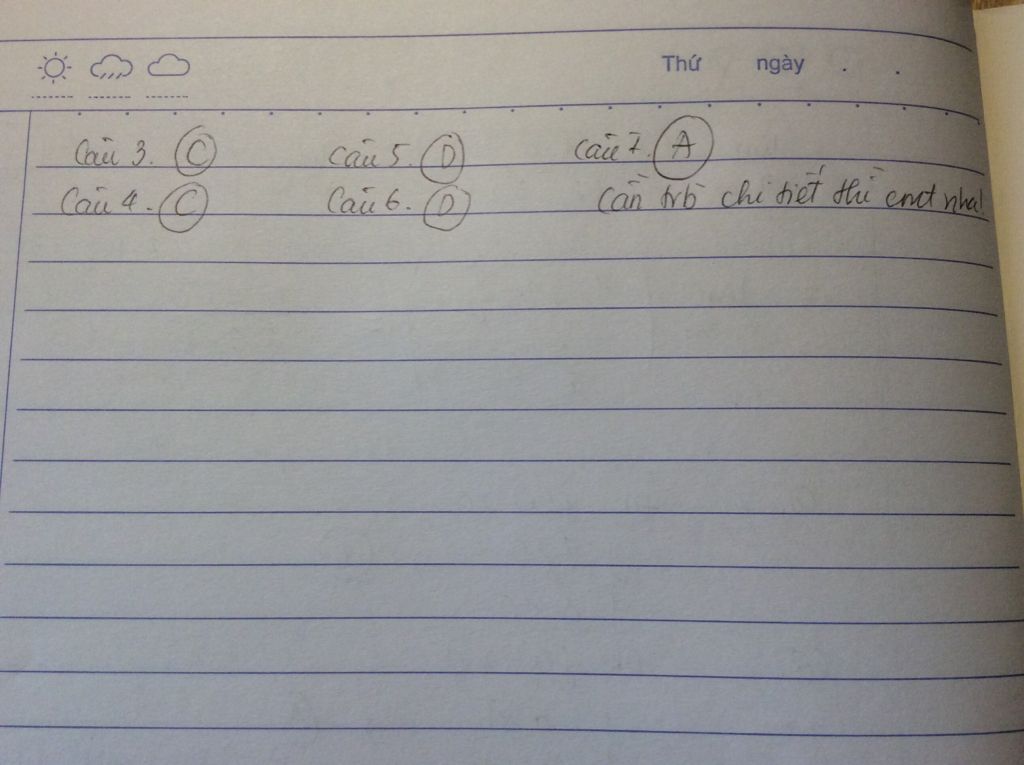 Thứ ngày . .
Câu 3. C Câu 5. D Câu 7. A
Câu 4. C Câu 6. D Cần trb chi tiết thì cmt nha!